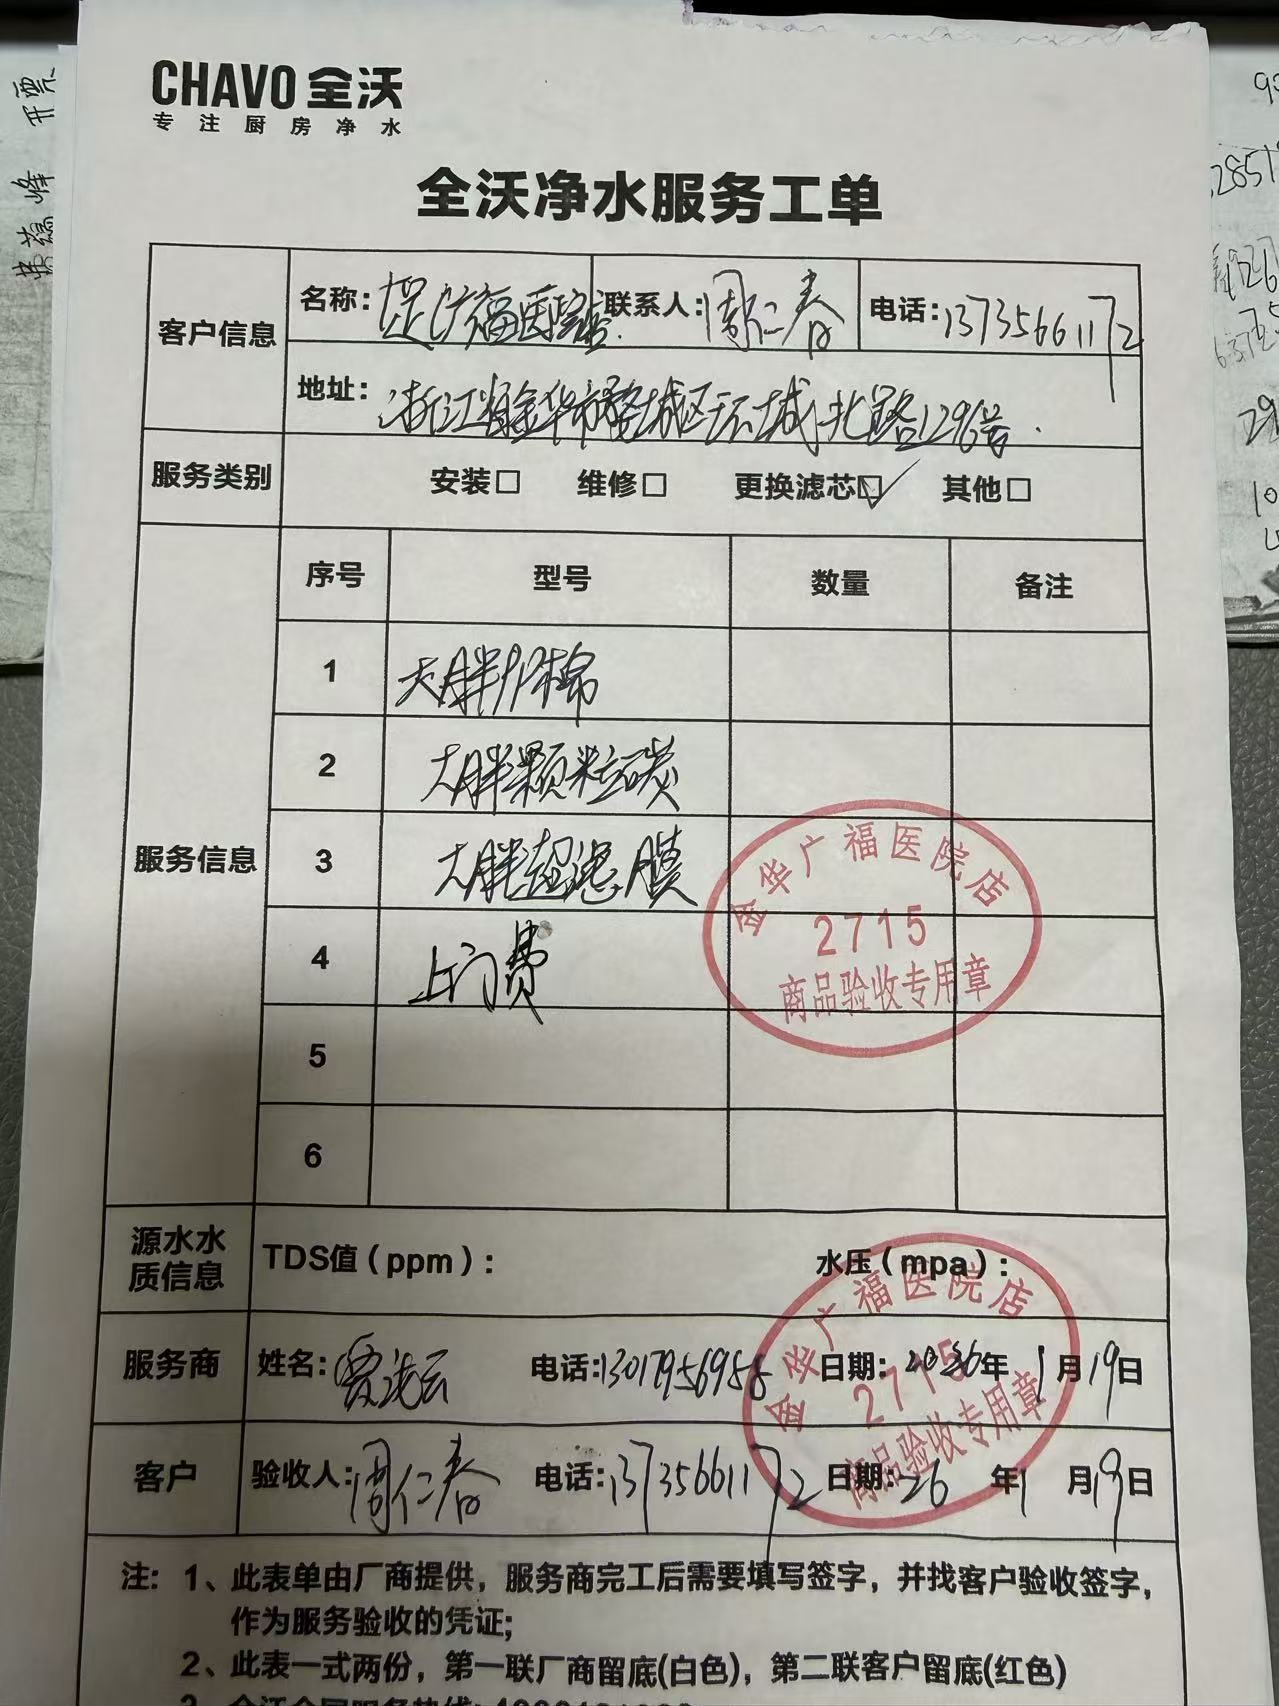 CHAVO 全沃
专注厨房净水
全沃净水服务工单
客户信息
名称： 广福医院店
联系人：周仁春
电话：13735661172
地址：浙江省金华市婺城区环城北路1296号
服务类别
安装□ 维修□ 更换滤芯☑ 其他□
服务信息
序号 型号 数量 备注
1 大胖PP棉
2 大胖颗粒碳
3 大胖超滤膜
4 上门费
5
6
金华广福医院店
2715
商品验收专用章
源水水质信息
TDS值（ppm）： 水压（mpa）：
金华广福医院店
2715
商品验收专用章
服务商
姓名： 电话：13017956958 日期：2026年1月19日
客户
验收人：周仁春 电话：13735661172 日期：26年1月19日
注：1、此表单由厂商提供，服务商完工后需要填写签字，并找客户验收签字，
作为服务验收的凭证；
2、此表一式两份，第一联厂商留底(白色)，第二联客户留底(红色)
开票